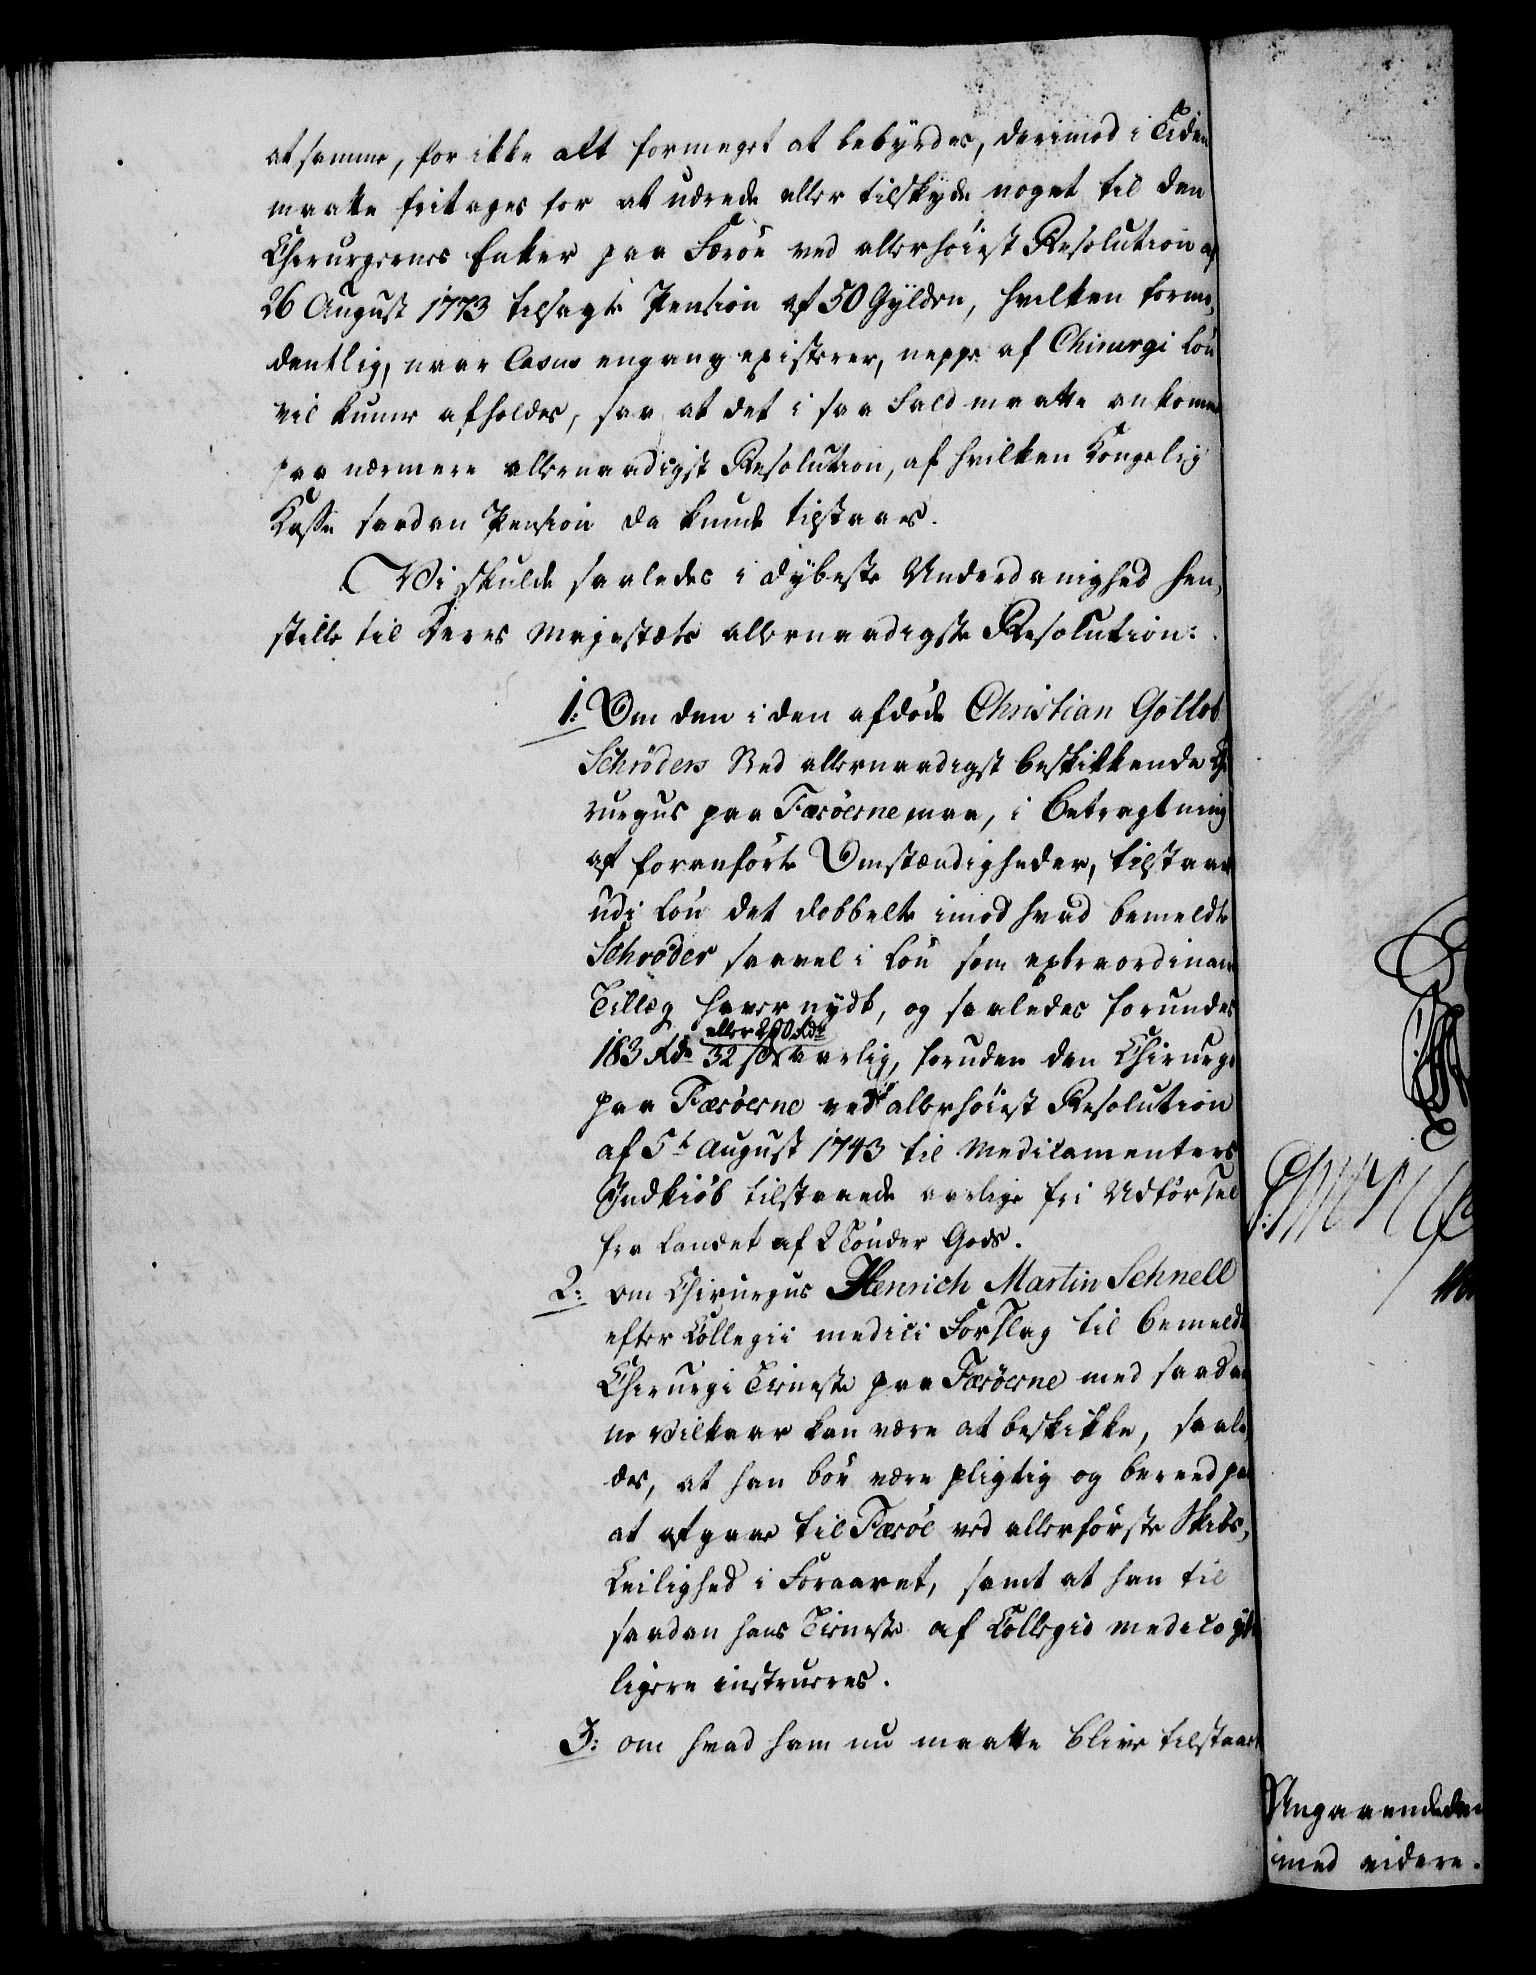 at samme, for ikke alt formeget at bebyrdes, derimod i Tiden
maatte fritages for at udrede eller tilskyde noget til den
Chirurgernes Enker paa Færöe ved allerhöiest Resolution af
26 August 1773 tilsagte Pension af 50 Gylden, hvilken formo,
dentlig, naar Casus engang existerer, neppe af Chirurgi Lön
vil kunne afholdes, saa at det i saa Fald maatte ankomme
paa nærmere allernaadigst Resolution, af hvilken Kongelig
Kasse saadan Pension da kunde tilstaaes.
Vi skulde saaledes i dybeste Underdanighed hen,
stille til Deres Majestæts allernaadigste Resolution:
1: Om den i den afdöde Christian Gottlob
Schröders Sted allernaadigst beskikkende Chi
rurgus paa Færöerne maa, i Betragtning
af foranförte Omstændigheder, tilstaaes
udi Lön det dobbelte imod hvad bemeldte
Schröder saavel i Lön som extraordinair
Tillæg haver nydt, og saaledes forundes
eller 200 Rdr
183 Rdr 32 s aarlig, foruden den Chirurgo
paa Færöerne ved allerhöiest Resolution
af 5t August 1743 til Medicamenters
Indkiöb tilstaaede aarlige fri Udförsel
fra Landet af 2 Tönder Gods.
2: om Chirurgus Henrich Martin Schnell
efter Collegii medici Forslag til bemeldte
Chirurgi Tieneste paa Færöerne med saadan
ne Vilkaar kan være at beskikke, saale,
des, at han bör være pligtig og bereed paa
at afgaae til Færöe ved allerförste Skibs,
Leilighed i Foraaret, samt at han til
saadan hans Tieneste af Collegio medico yder
ligere instrueres.
3: om hvad ham nu maatte blive tilstaaet
Angaaende den
med videre.